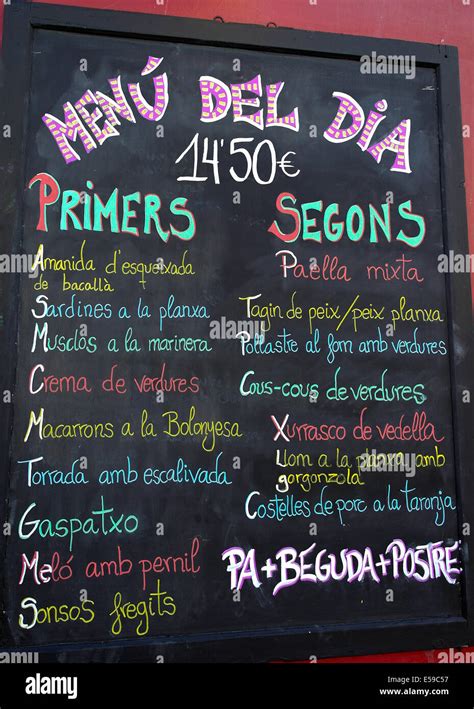 MENÚ DEL DIA
14'50€
PRIMERS
Amanida d'esqueixada
de bacallà
Sardines a la planxa
Musclos a la marinera
Crema de verdures
Macarrons a la Bolonyesa
Torrada amb escalivada
Gaspatxo
Meló amb pernil
Sonsos fregits
SEGONS
Paella mixta
Tagin de peix/peix planxa
Pollastre al forn amb verdures
Cous-cous de verdures
Xurrasco de vedella
Llom a la planxa amb
gorgonzola
Costelles de porc a la taronja
PA+BEGUDA+POSTRE
alamy stock photo
E59C57